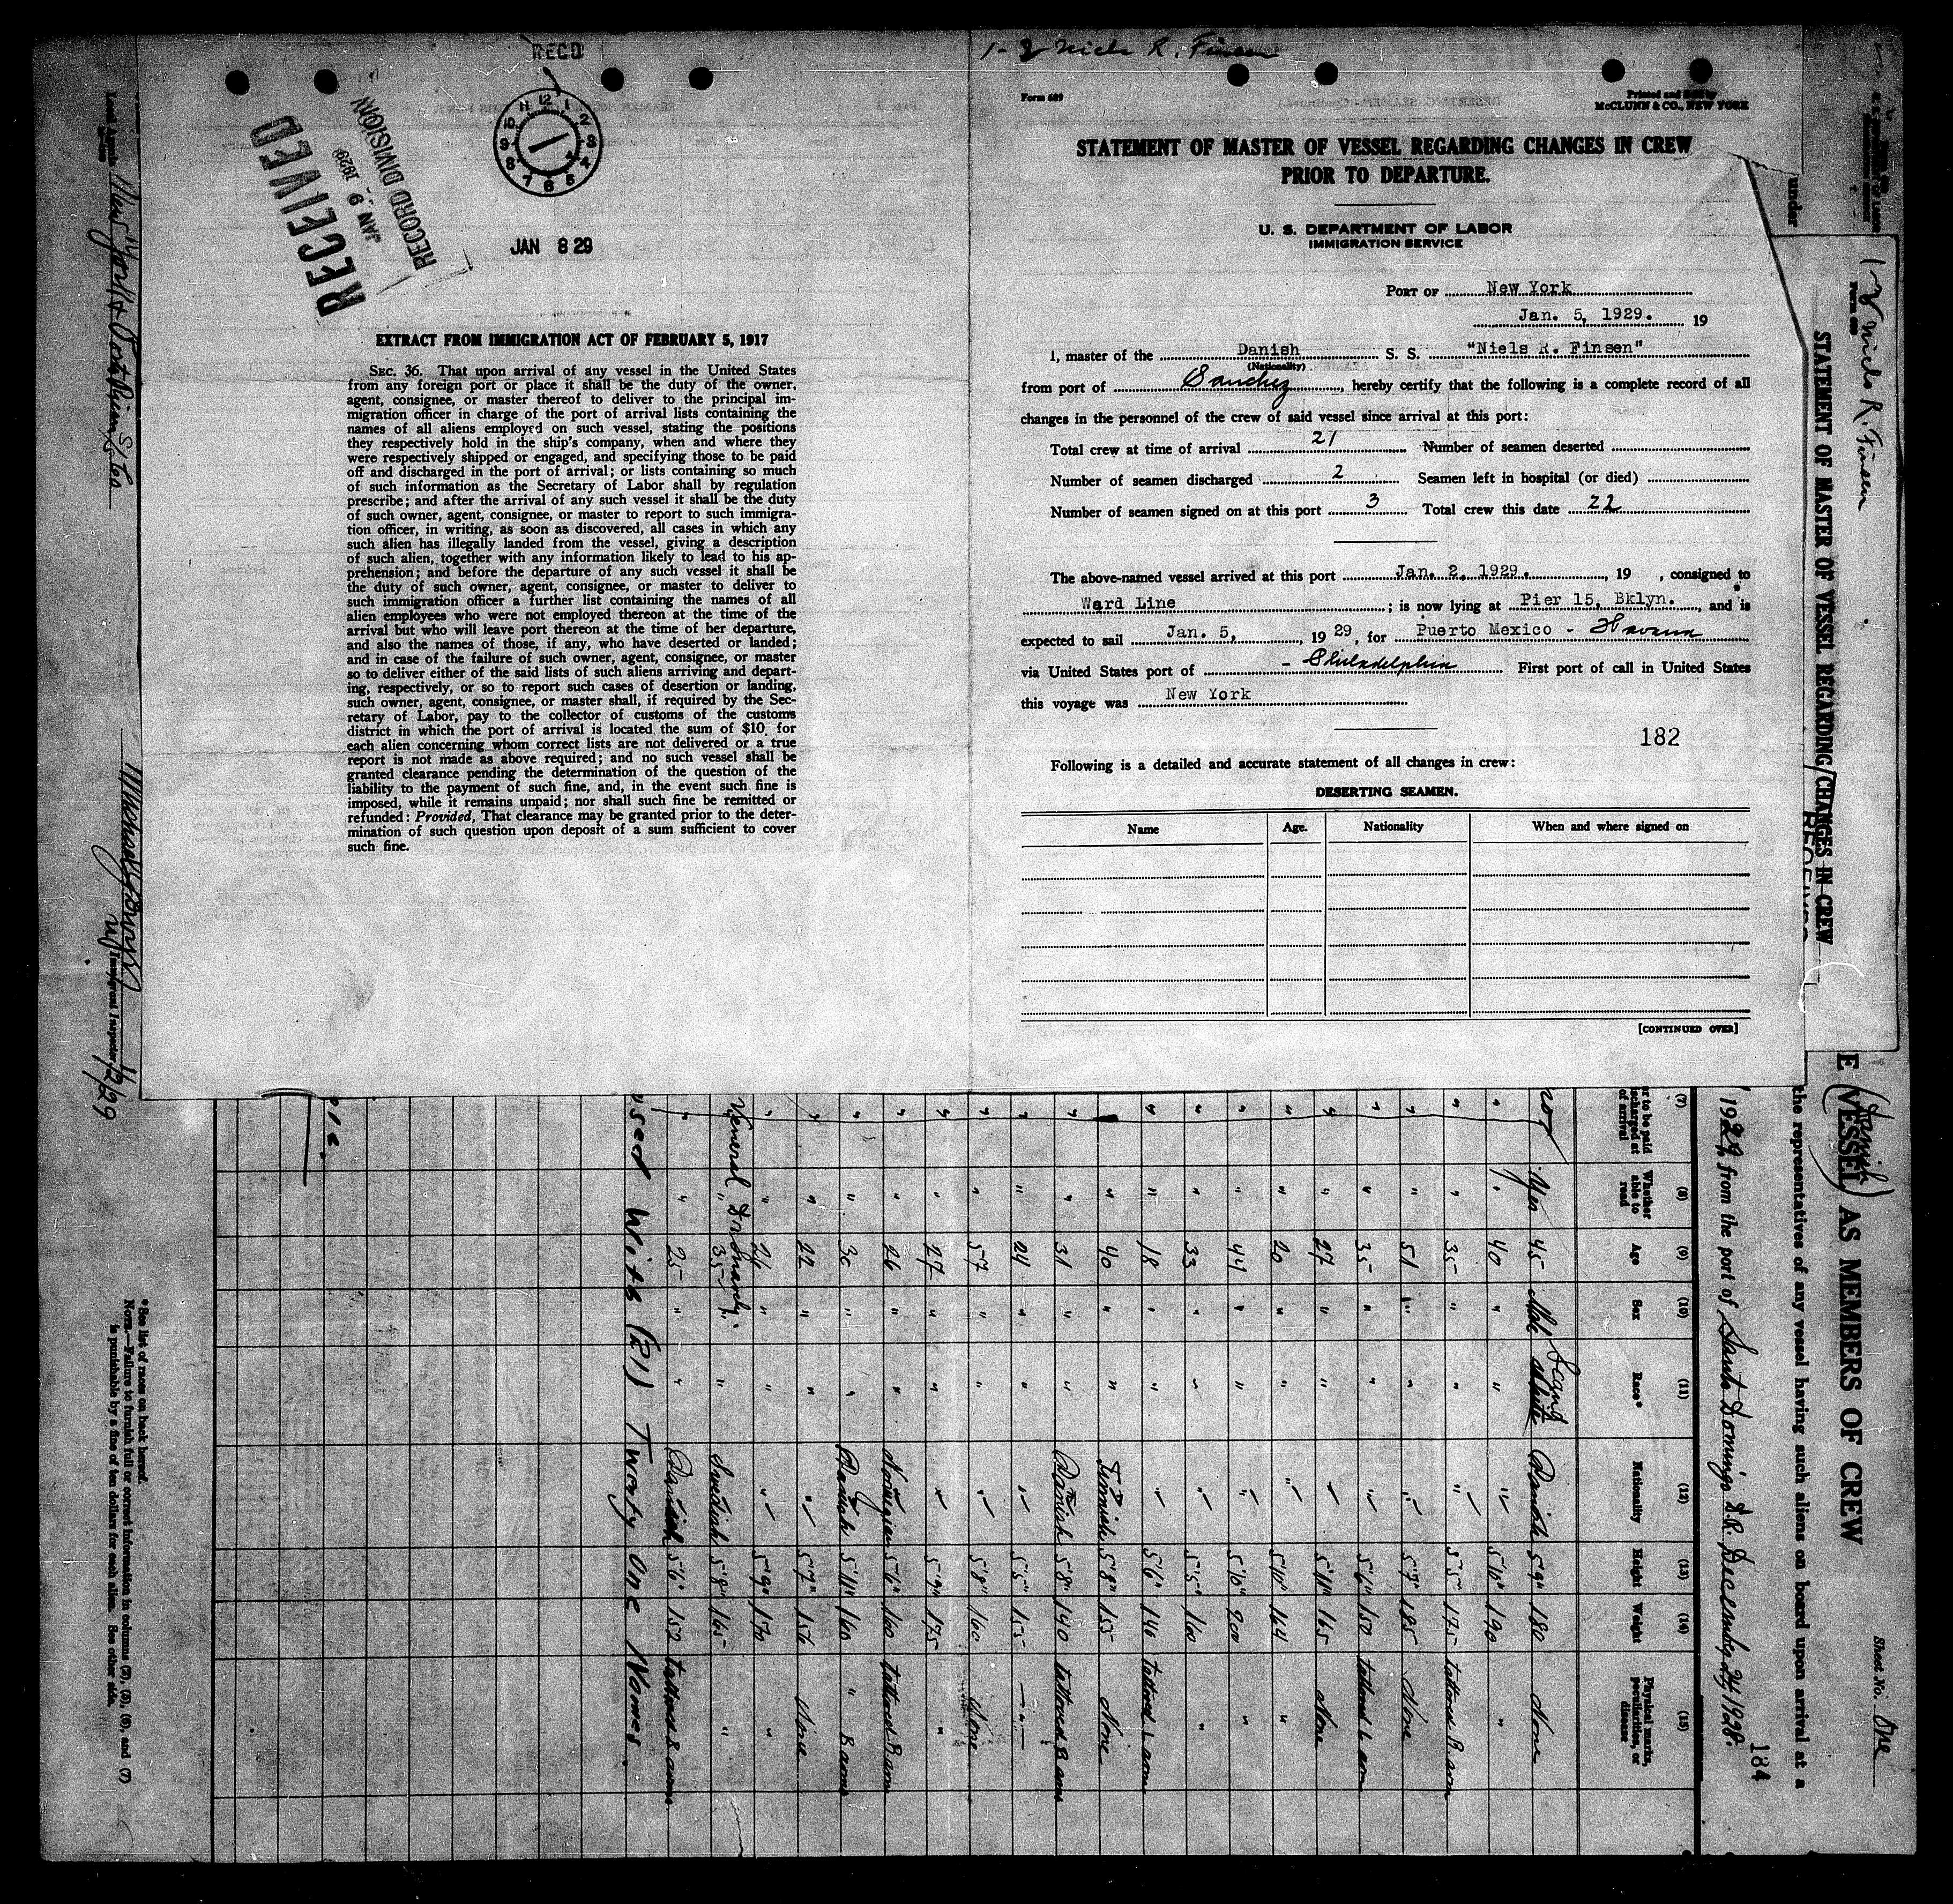 RECD
1- 2 Niels R. Finsen
RECEIVED
JAN 9 1929
RECORD DIVISION
12 1 2 3 4 5 6 7 8 9 10 11
JAN 8 29
EXTRACT FROM IMMIGRATION ACT OF FEBRUARY 5, 1917
SEC. 36. That upon arrival of any vessel in the United States
from any foreign port or place it shall be the duty of the owner,
agent, consignee, or master thereof to deliver to the principal im-
migration officer in charge of the port of arrival lists containing the
names of all aliens employed on such vessel, stating the positions
they respectively hold in the ship's company, when and where they
were respectively shipped or engaged, and specifying those to be paid
off and discharged in the port of arrival; or lists containing so much
of such information as the Secretary of Labor shall by regulation
prescribe; and after the arrival of any such vessel it shall be the duty
of such owner, agent, consignee, or master to report to such immigra-
tion officer, in writing, as soon as discovered, all cases in which any
such alien has illegally landed from the vessel, giving a description
of such alien, together with any information likely to lead to his ap-
prehension; and before the departure of any such vessel it shall be
the duty of such owner, agent, consignee, or master to deliver to
such immigration officer a further list containing the names of all
alien employees who were not employed thereon at the time of the
arrival but who will leave port thereon at the time of her departure,
and also the names of those, if any, who have deserted or landed;
and in case of the failure of such owner, agent, consignee, or master
so to deliver either of the said lists of such aliens arriving and depart-
ing, respectively, or so to report such cases of desertion or landing,
such owner, agent, consignee, or master shall, if required by the Sec-
retary of Labor, pay to the collector of customs of the customs
district in which the port of arrival is located the sum of $10 for
each alien concerning whom correct lists are not delivered or a true
report is not made as above required; and no such vessel shall be
granted clearance pending the determination of the question of the
liability to the payment of such fine, and, in the event such fine is
imposed, while it remains unpaid; nor shall such fine be remitted or
refunded: Provided, That clearance may be granted prior to the deter-
mination of such question upon deposit of a sum sufficient to cover
such fine.
Form 689
Printed and Sold by
McCLUNN & CO., NEW YORK
STATEMENT OF MASTER OF VESSEL REGARDING CHANGES IN CREW
PRIOR TO DEPARTURE.
U. S. DEPARTMENT OF LABOR
IMMIGRATION SERVICE
PORT OF New York
Jan. 5, 1929. 19
I, master of the Danish S. S. "Niels R. Finsen"
(Nationality)
from port of Sanchez, hereby certify that the following is a complete record of all
changes in the personnel of the crew of said vessel since arrival at this port:
Total crew at time of arrival 21 Number of seamen deserted
Number of seamen discharged 2 Seamen left in hospital (or died)
Number of seamen signed on at this port 3 Total crew this date 22
The above-named vessel arrived at this port Jan. 2, 1929. , 19 , consigned to
Ward Line ; is now lying at Pier 15, Bklyn. , and is
expected to sail Jan. 5, , 19 29 , for Puerto Mexico - Havana
via United States port of - Philadelphia First port of call in United States
this voyage was New York
182
Following is a detailed and accurate statement of all changes in crew:
DESERTING SEAMEN.
Name Age. Nationality When and where signed on
[CONTINUED OVER]
under
1-2 Niels R. Finsen
Form 689
STATEMENT OF MASTER OF VESSEL REGARDING CHANGES IN CREW
Sheet No. One
(Danish)
E (VESSEL) AS MEMBERS OF CREW
the representatives of any vessel having such aliens on board upon arrival at a
184
1929, from the port of Santo Domingo D.R. December 24 1928.
(7) (8) (9) (10) (11) (12) (13) (14) (15)
or to be paid discharged at of arrival
Whether able to read
Age
Sex
Race*
Nationality
Height
Weight
Physical marks, peculiarities, or disease
Yes 45 Male Scand Danish 5'9" 180 None
" 40 " " " 5'10" 190 "
" 35 " " " 5'5" 175 tattooed R arm
" 51 " " " 5'7" 185 None
" 35 " " " 5'6" 150 tattooed L arm
" 27 " " " 5'11" 165 None
" 20 " " " 5'10" 164 "
" 44 " " " 5'10" 200 "
" 33 " " " 5'5" 160 "
" 18 " " " 5'6" 146 tattooed L arm
" 40 " " Finnish 5'8" 155 None
" 31 " " Danish 5'8" 140 tattooed B arms
" 24 " " " 5'5" "
" 57 " " " 5'8" 160 None
" 27 " " " 5'9" 175 "
" 26 " " Norwegian 5'6" 160 tattooed R arm
" 30 " " Danish 5'11" 160 " B arms
" 22 " " " 5'7" 156 None
" 24 " " " 5'9" 170 "
" 35 " " Swedish 5'8" 165 "
" 25 " " Danish 5'6" 152 tattooed B arms
With (21) Twenty One Names.
*See list of races on back hereof.
NOTE.—Failure to furnish full or correct information in columns (3), (5), (6), and (7)
is punishable by a fine of ten dollars for each alien. See other side.
Local Agents New York & Porto Rico S/S Co
Immigrant Inspector. 1/2/29